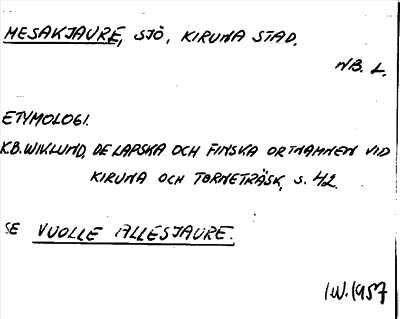 MESAKJAURE, SJÖ, KIRUNA STAD.
NB. L.
ETYMOLOGI.
K.B. WIKLUND, DE LAPSKA OCH FINSKA ORTNAMNEN VID
KIRUNA OCH TORNETRÄSK, S. 42.
SE VUOLLE ALLESJAURE.
I.W. 1957